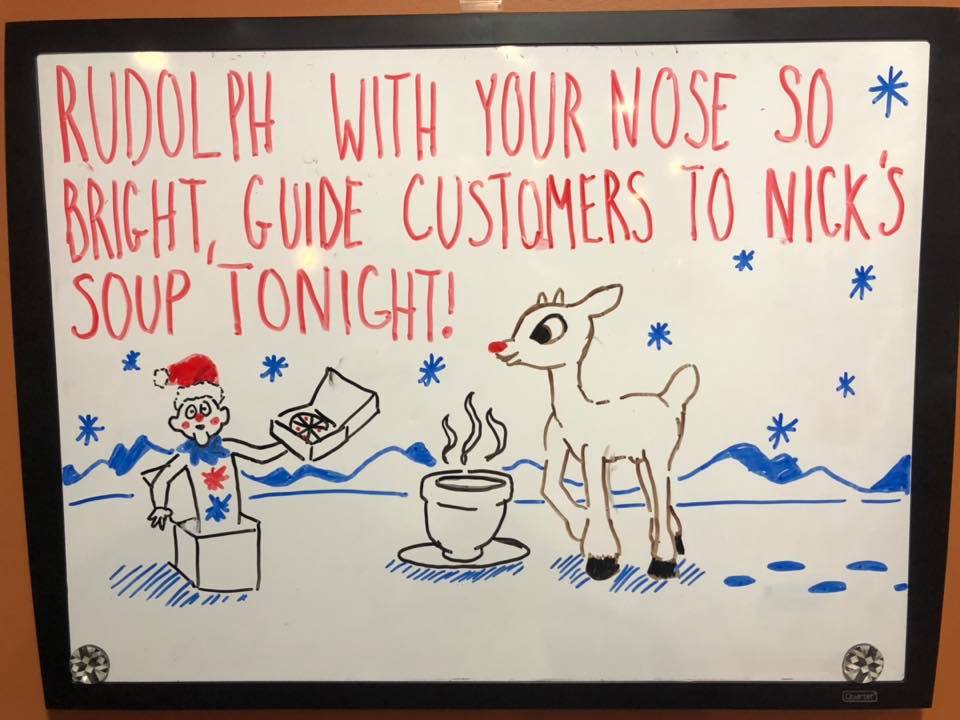 RUDOLPH WITH YOUR NOSE SO
BRIGHT, GUIDE CUSTOMERS TO NICK'S
SOUP TONIGHT!
Quartet